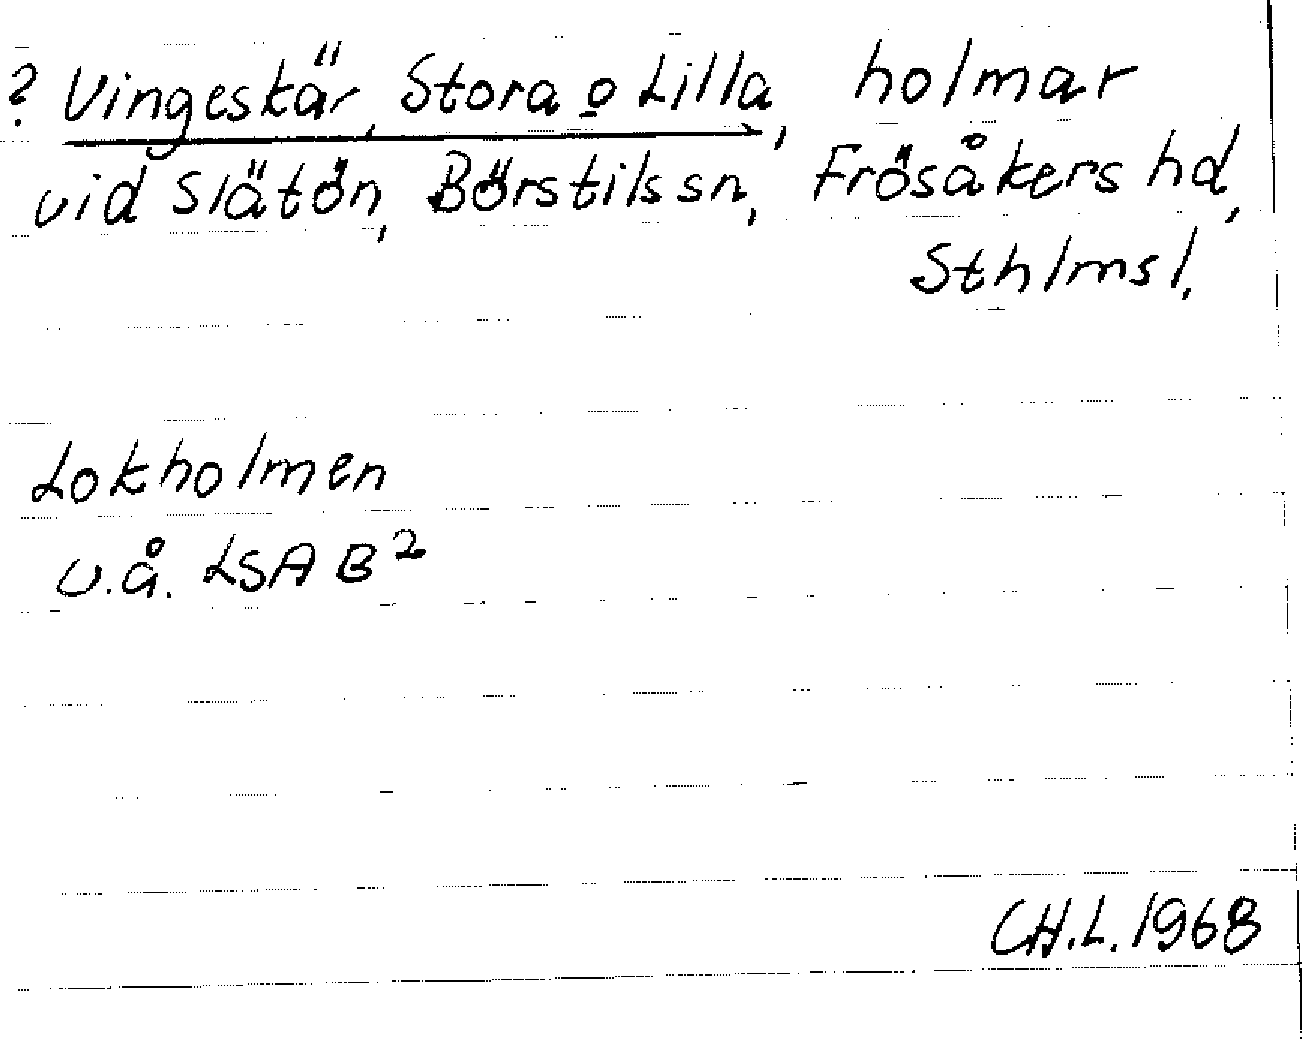 ? Vingeskär, Stora o Lilla, holmar
vid Slätön, Börstils sn, Frösåkers hd,
Sthlms l.
Lokholmen
u.å. LSA B²
CH.L. 1968